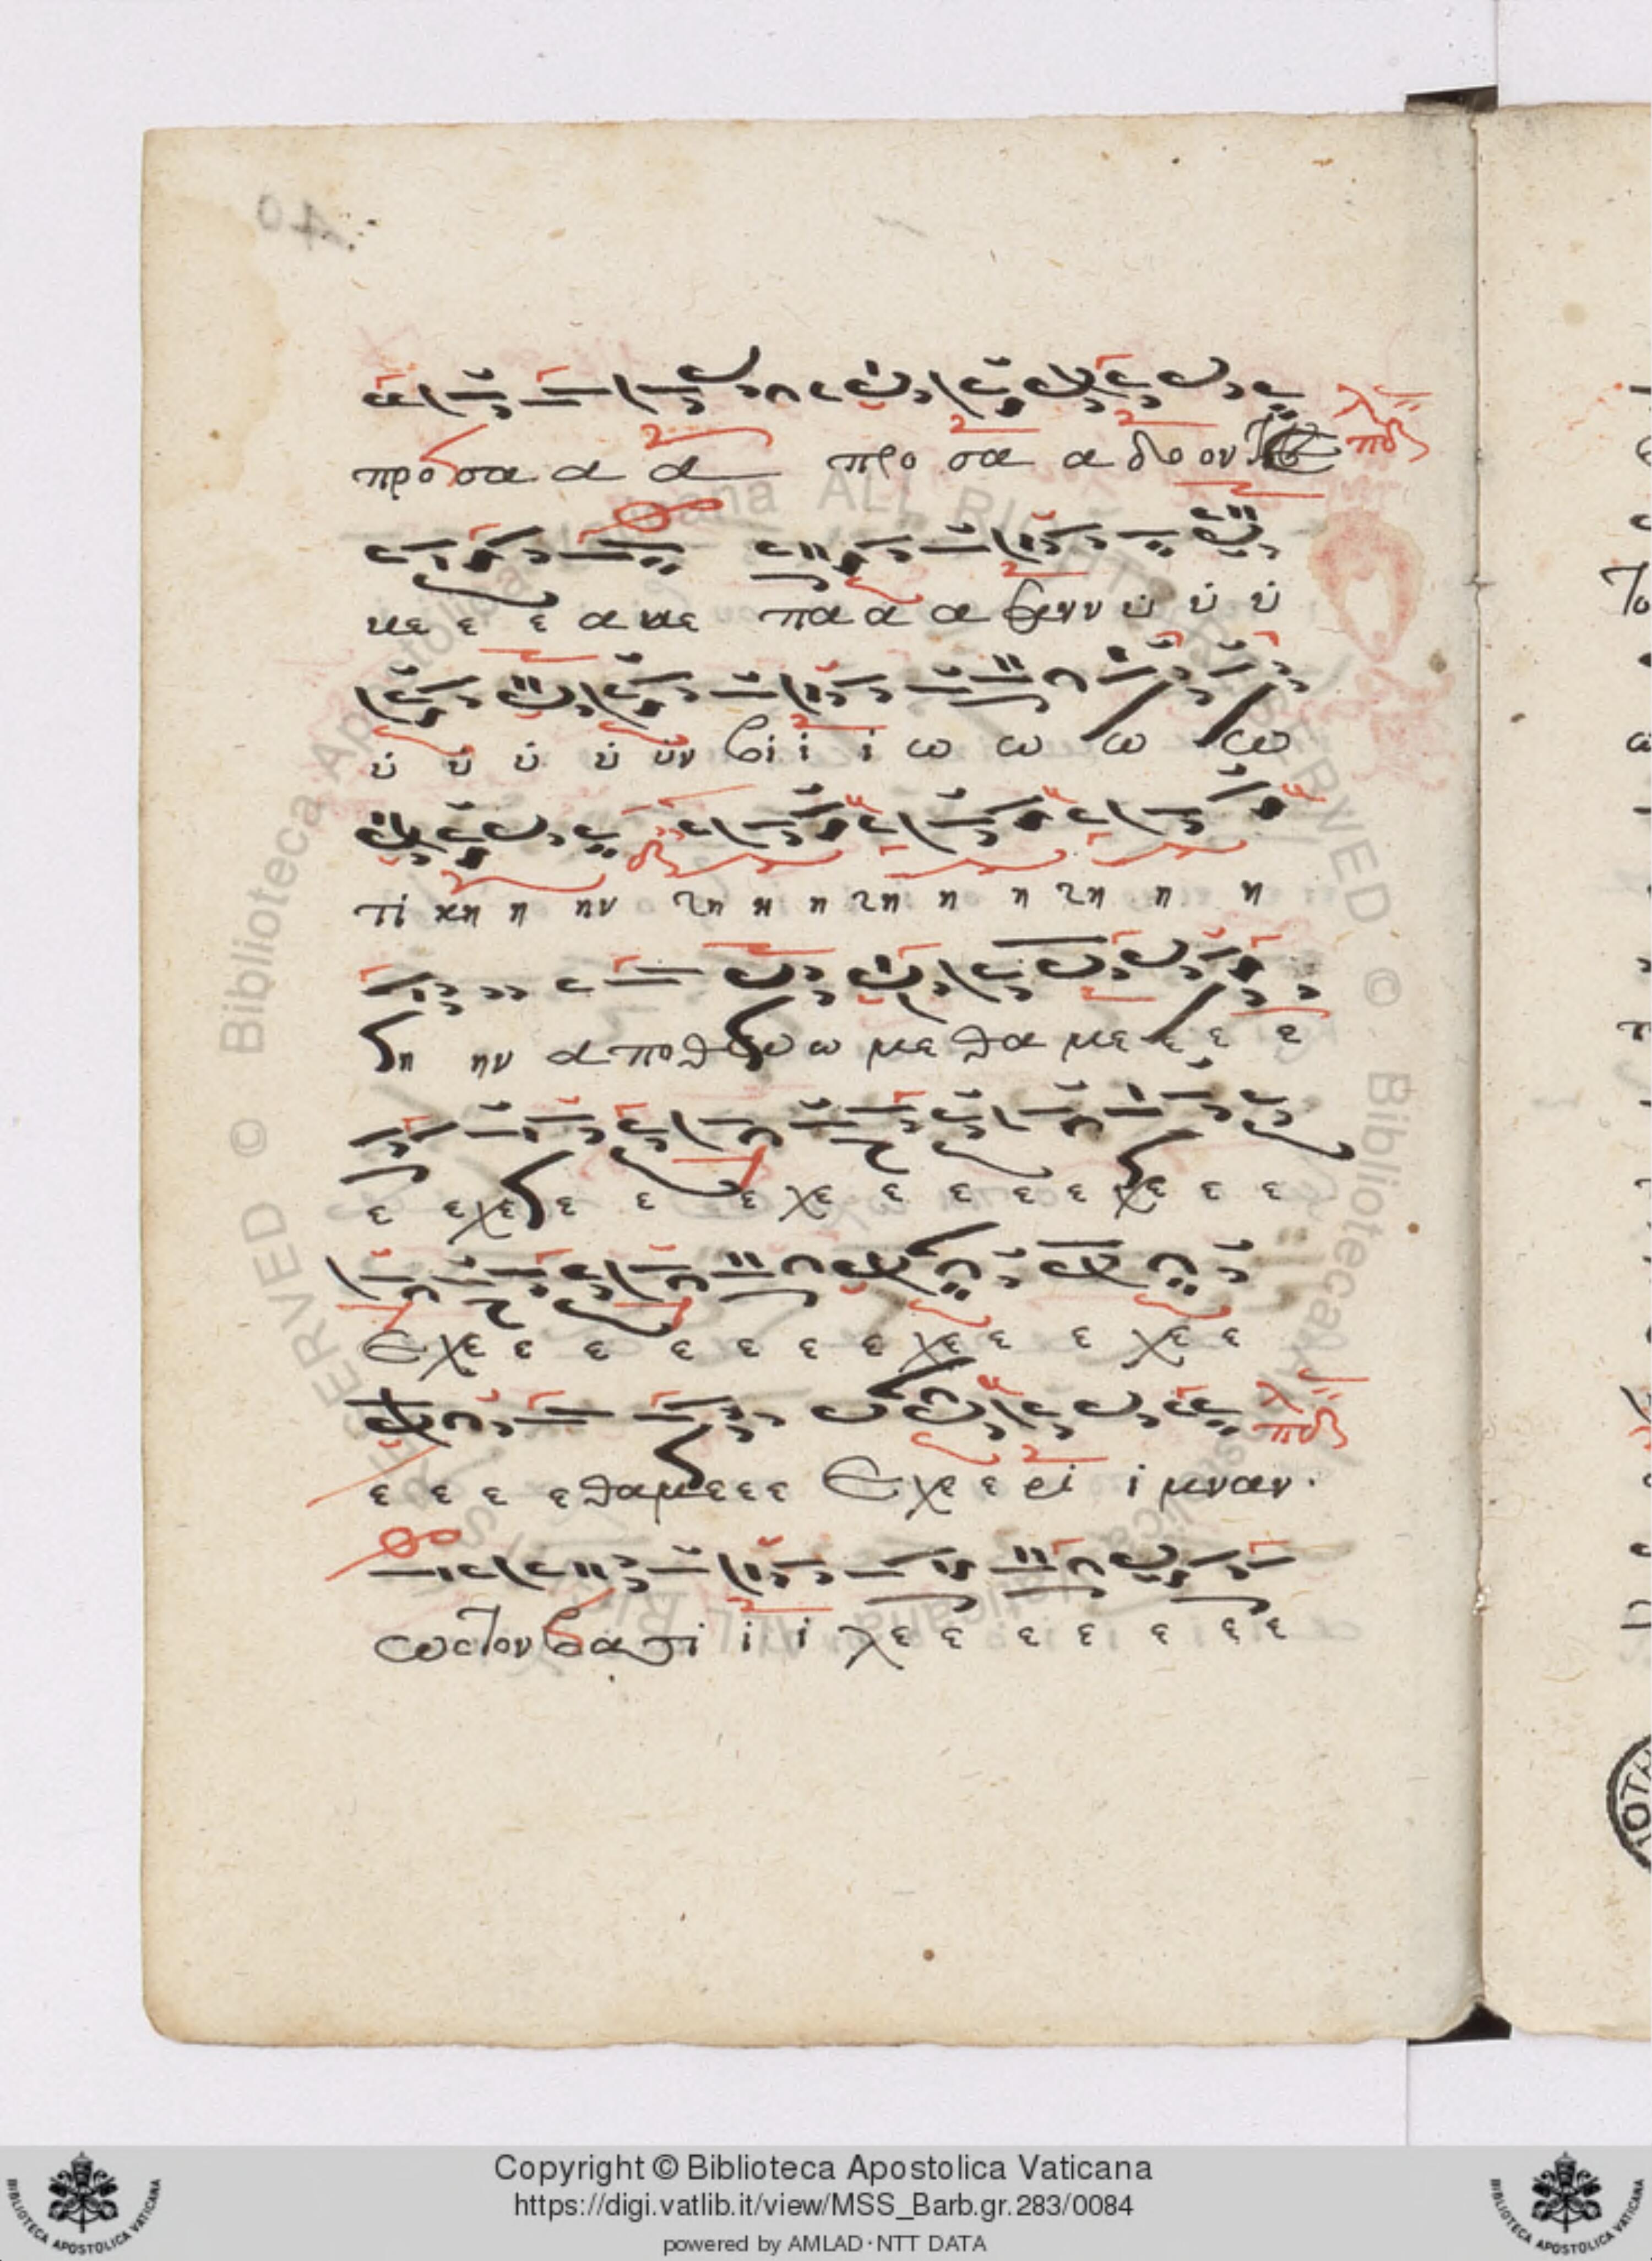 προ σα α α προ σα α δο ον τε
κε ε ε α κε πα α α σαν νυ υ υ υ
υ υ υ υ υν βι ι ι ω ω ω ω
τι κη η ην τη η η τη η η τη η η
η ην α πο θω ω με θα με ε ε ε
ε ε χε ε ε ε χε ε ε ε ε χε ε ε
ε χε ε ε ε ε ε ε χε ε ε χε ε
ε ε ε ε θα με ε ε ε χε ε ρι ι μναν.
ως τον βα σι ι ι χε ε ε ε ε ε ε
Copyright © Biblioteca Apostolica Vaticana
https://digi.vatlib.it/view/MSS_Barb.gr.283/0084
powered by AMLAD · NTT DATA